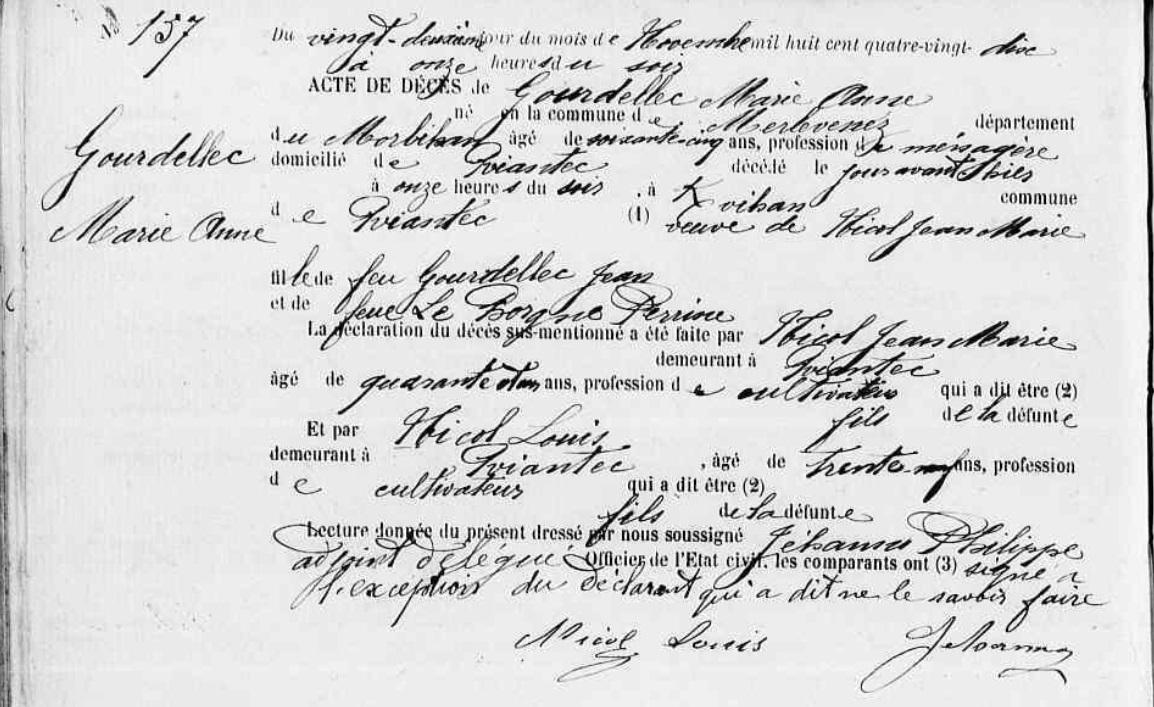 No 157
Du vingt-deuxième jour du mois de Novembre mil huit cent quatre-vingt-dix
à onze heures du soir
ACTE DE DÉCÈS de Gourdellec Marie Anne
né en la commune de Merlevenez département
Gourdellec
Marie Anne
du Morbihan âgé de soixante cinq ans, profession de ménagère
domicilié de Rviantec décédé le jour avant hier
à onze heures du soir, à K vihan commune
de Rviantec (1) veuve de Nicol Jean Marie
fille de feu Gourdellec Jean
et de feue Le Borgne Perrine
La déclaration du décès sus-mentionné a été faite par Nicol Jean Marie
demeurant à Rviantec
âgé de quarante et un ans, profession de cultivateur qui a dit être (2)
fils de la défunte
Et par Nicol Louis
demeurant à Rviantec, âgé de trente neuf ans, profession
de cultivateur qui a dit être (2)
fils de la défunte
Lecture donnée du présent dressé par nous soussigné Jéhanno Philippe
adjoint délégué Officier de l'Etat civil. les comparants ont (3) signé à
l'exception du déclarant qui a dit ne le savoir faire
Nicol Louis Jehanno